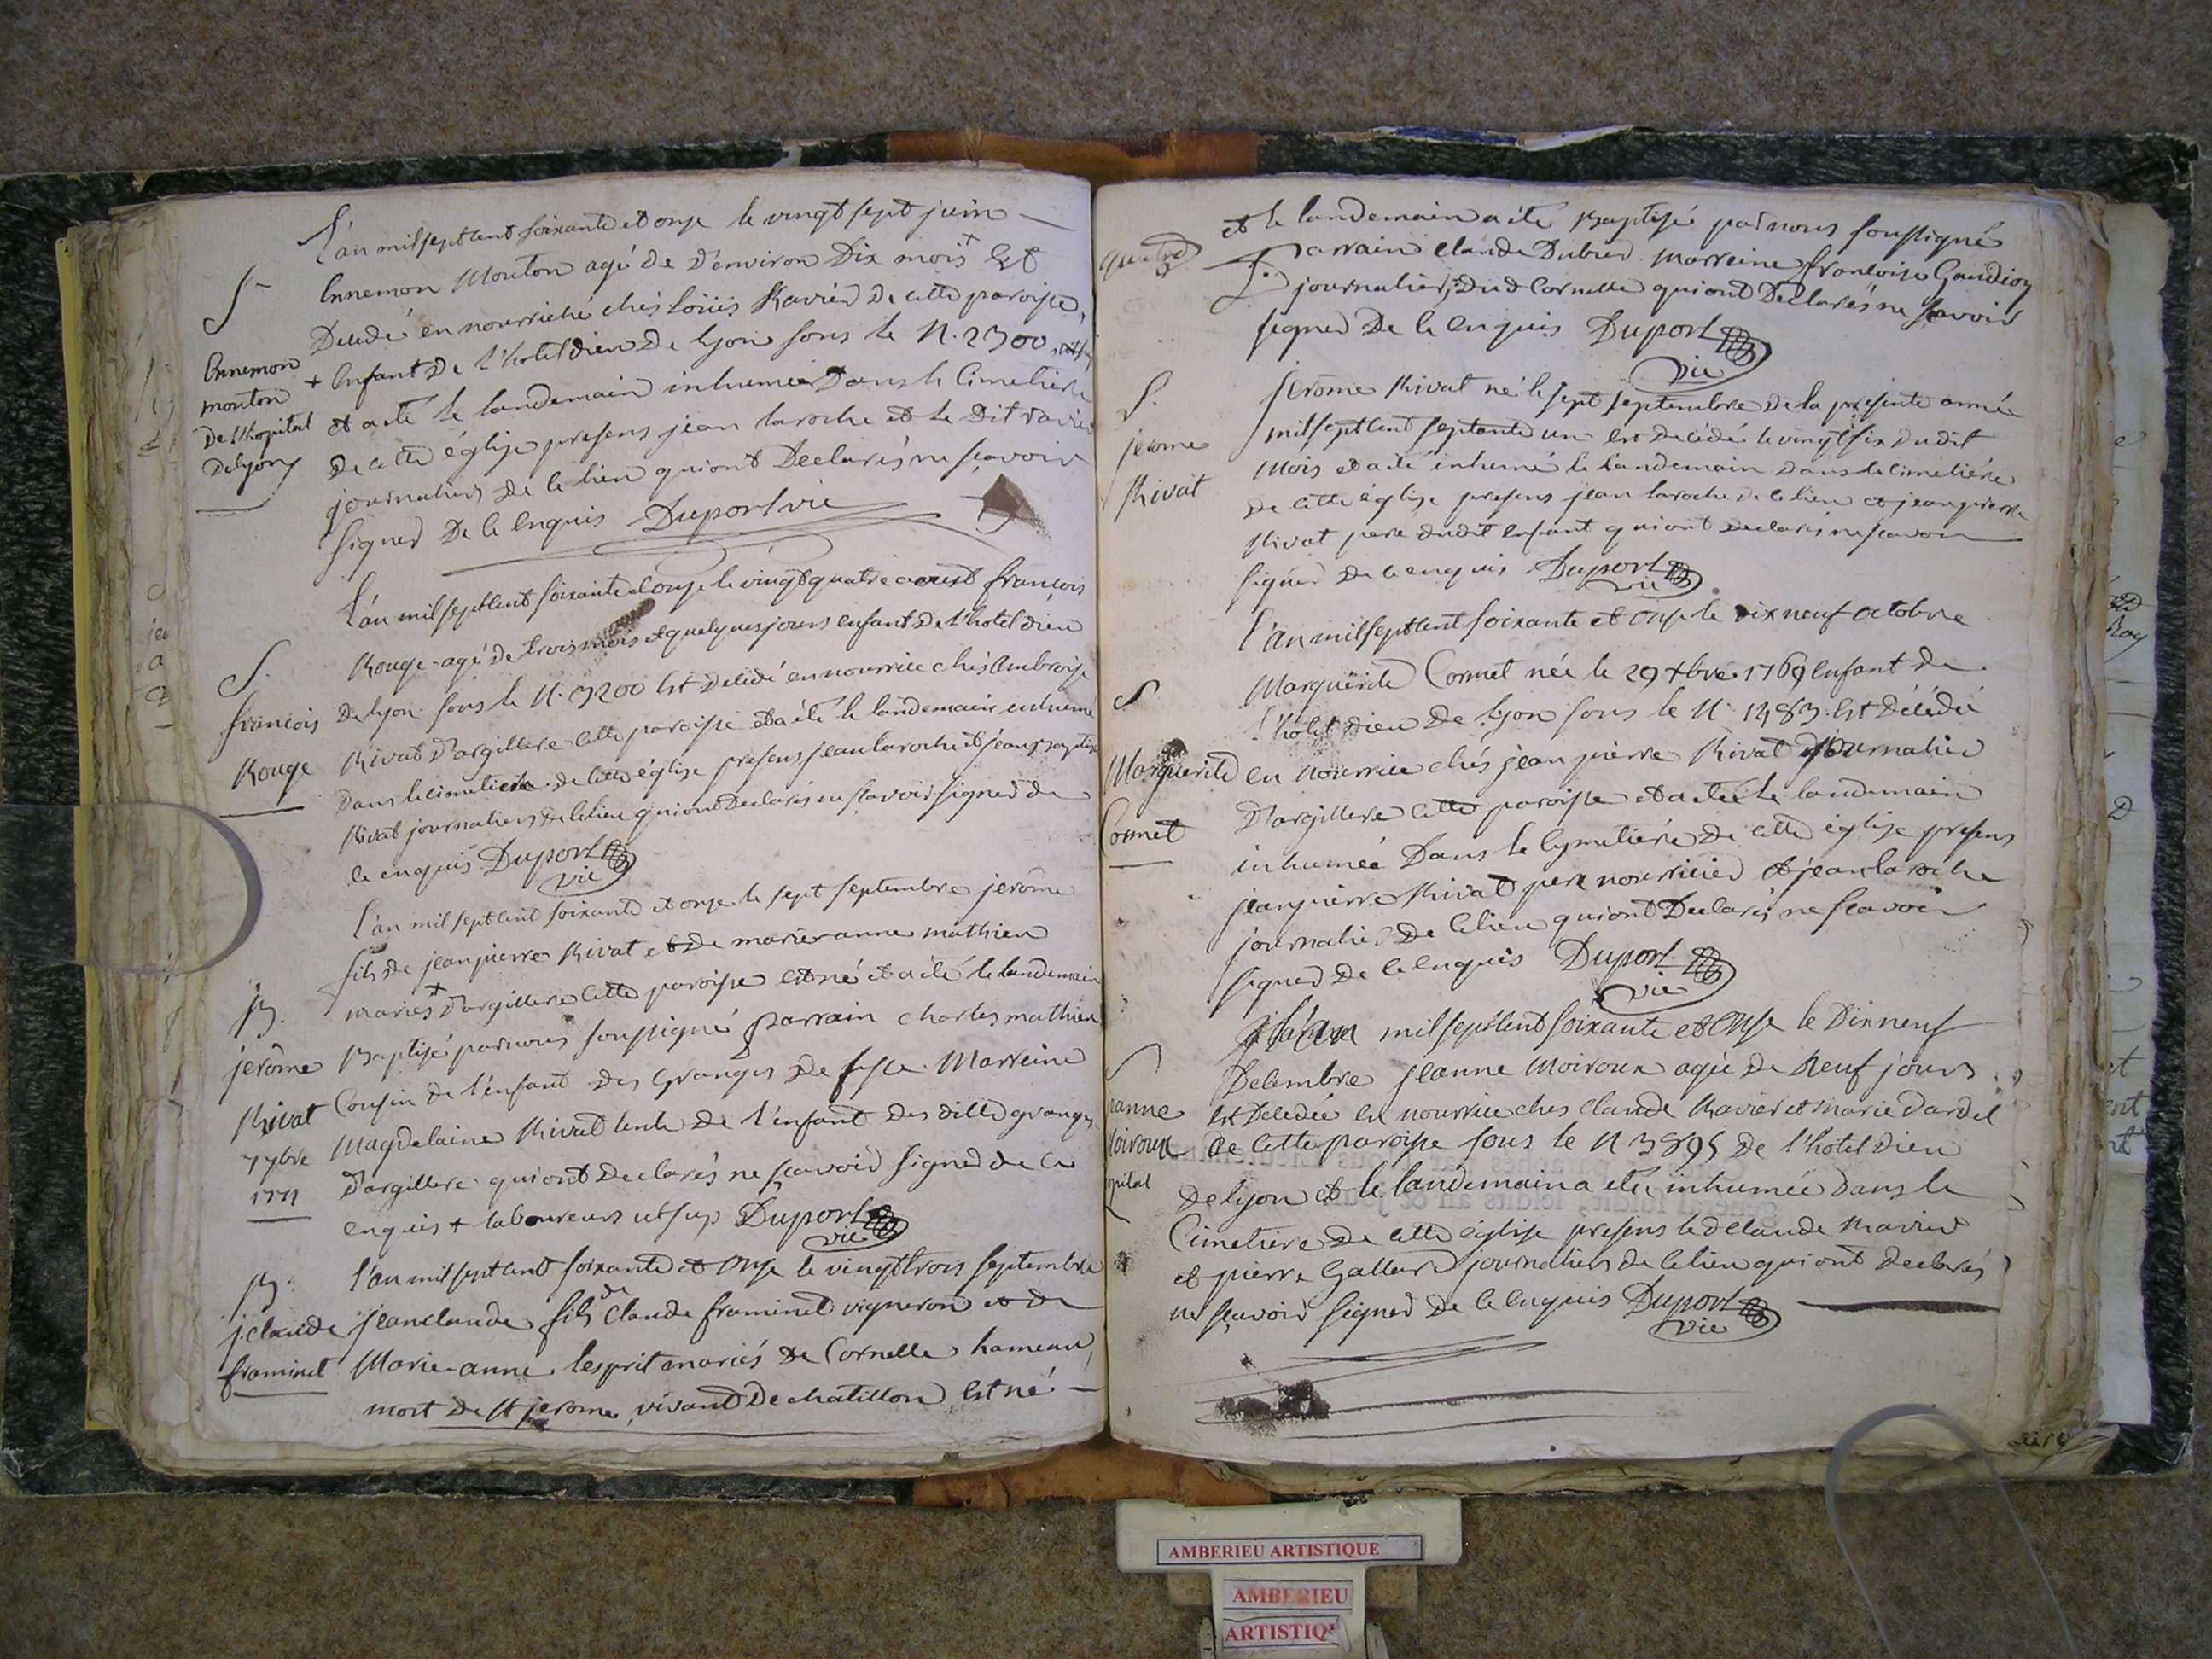 L'an mil sept cent soixante et onze le vingt sept juin
S
Ennemon Mouton agé de d'environ Dix mois + Est
Decedé en nourriche chés Loüis Ravier de cette paroisse,
Ennemon
mouton
De l'hopital
De lyon
+ Enfant De l'hotel dieu De lyon sous le N. 2300
et a eté le landemain inhumée Dans le Cimetiere
De cette église presens jean laroche et le Dit ravier
journaliers De ce lieu qui ont Declarés ne sçavoir
signer De ce Enquis Duport vic
L'an mil sept cent soixante et onze le vingt quatre aoust francois
S.
francois
Rouge
Rouge agé de trois mois et quelques jours enfant De l'hotel dieu
De lyon sous le N. 3200 Est Decedé en nourrice chés Ambroise
Rivat D'argillere cette paroisse et a été le landemain inhumé
Dans le cimetiere de cette église presens jean laroche et jean baptiste
Rivat journaliers de ce lieu qui ont Declarés ne scavoir signer de
ce enquis Duport
vic
L'an mil sept cent soixante et onze le sept septembre jerôme
fils de jean pierre Rivat et de marie anne mathieu
mariés + D'argillere cette paroisse est né et a été le landemain
B.
jerôme
Rivat
7 7bre
1771
Baptisé par nous soussigné parrain charles mathieu
Cousin de l'enfant des Granges De Marreine
Magdelaine Rivat tante de l'enfant des dittes granges
D'argillere qui ont Declarés ne sçavoir signer de ce
enquis + laboureurs ut sup Duport
vic
B.
j. claude
framinet
l'an mil sept cent soixante et Onze le vingt trois septembre
jean claude fils de Claude framinet vigneron et de
Marie anne lesprit mariés De Cornelle hameau,
mort De St jerome, vivant De chatillon Est né
quatre
et le landemain a été Baptisé par nous soussigné
Parrain claude Dubreu marreine francoise Gaudion
journaliers, Dud Cornelle qui ont Declarés ne scavoir
signer De ce Enquis Duport
vic
S.
jerome
Rivat
Jerôme Rivat né le sept septembre de la presente année
mil sept cent septante un est decédé le vingt six dudit
mois et a été inhumé le landemain dans le cimetière
de cette église presens jean laroche de ce lieu et jean pierre
Rivat pere dudit enfant qui ont declarés ne scavoir
signer de ce enquis Duport
vic
L'an mil sept cent soixante et onze le dix neuf octobre
S
Marguerite
Cormet
Marguerite Cormet née le 29 xbre 1769 enfant de
l'hotel dieu De lyon sous le N. 1483 Est Décédée
en nourrice chés jean pierre Rivat journalier
D'argillere cette paroisse et a eté le landemain
inhumée Dans le Cymetiére de cette église presens
jean pierre Rivat pere nourricier et jean laroche
journaliers De ce lieu qui ont Declarés ne scavoir
signer de ce Enquis Duport
vic
L'an mil sept cent soixante et Onze le Dix neuf
Decembre jeanne Moiroux agée De Neuf jours
est Decedée en nourrice ches Claude Ravier et marie Dardel
De cette paroisse sous le N 3895 De l'hotel Dieu
De lyon et le landemain a eté inhumée Dans le
Cimetiere De cette église presens led Claude Ravier
et pierre Gallard journaliers de ce lieu qui ont declarés
ne sçavoir signer De ce Enquis Duport
vic
AMBERIEU ARTISTIQUE
AMBERIEU
ARTISTIQ